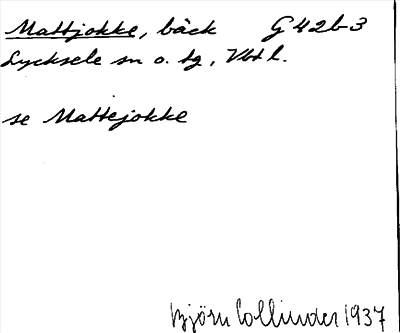 Mattjokke, bäck G 42b-3
Lycksele sn o. tg, Vbtl.
se Mattejokke
Björn Collinder 1937